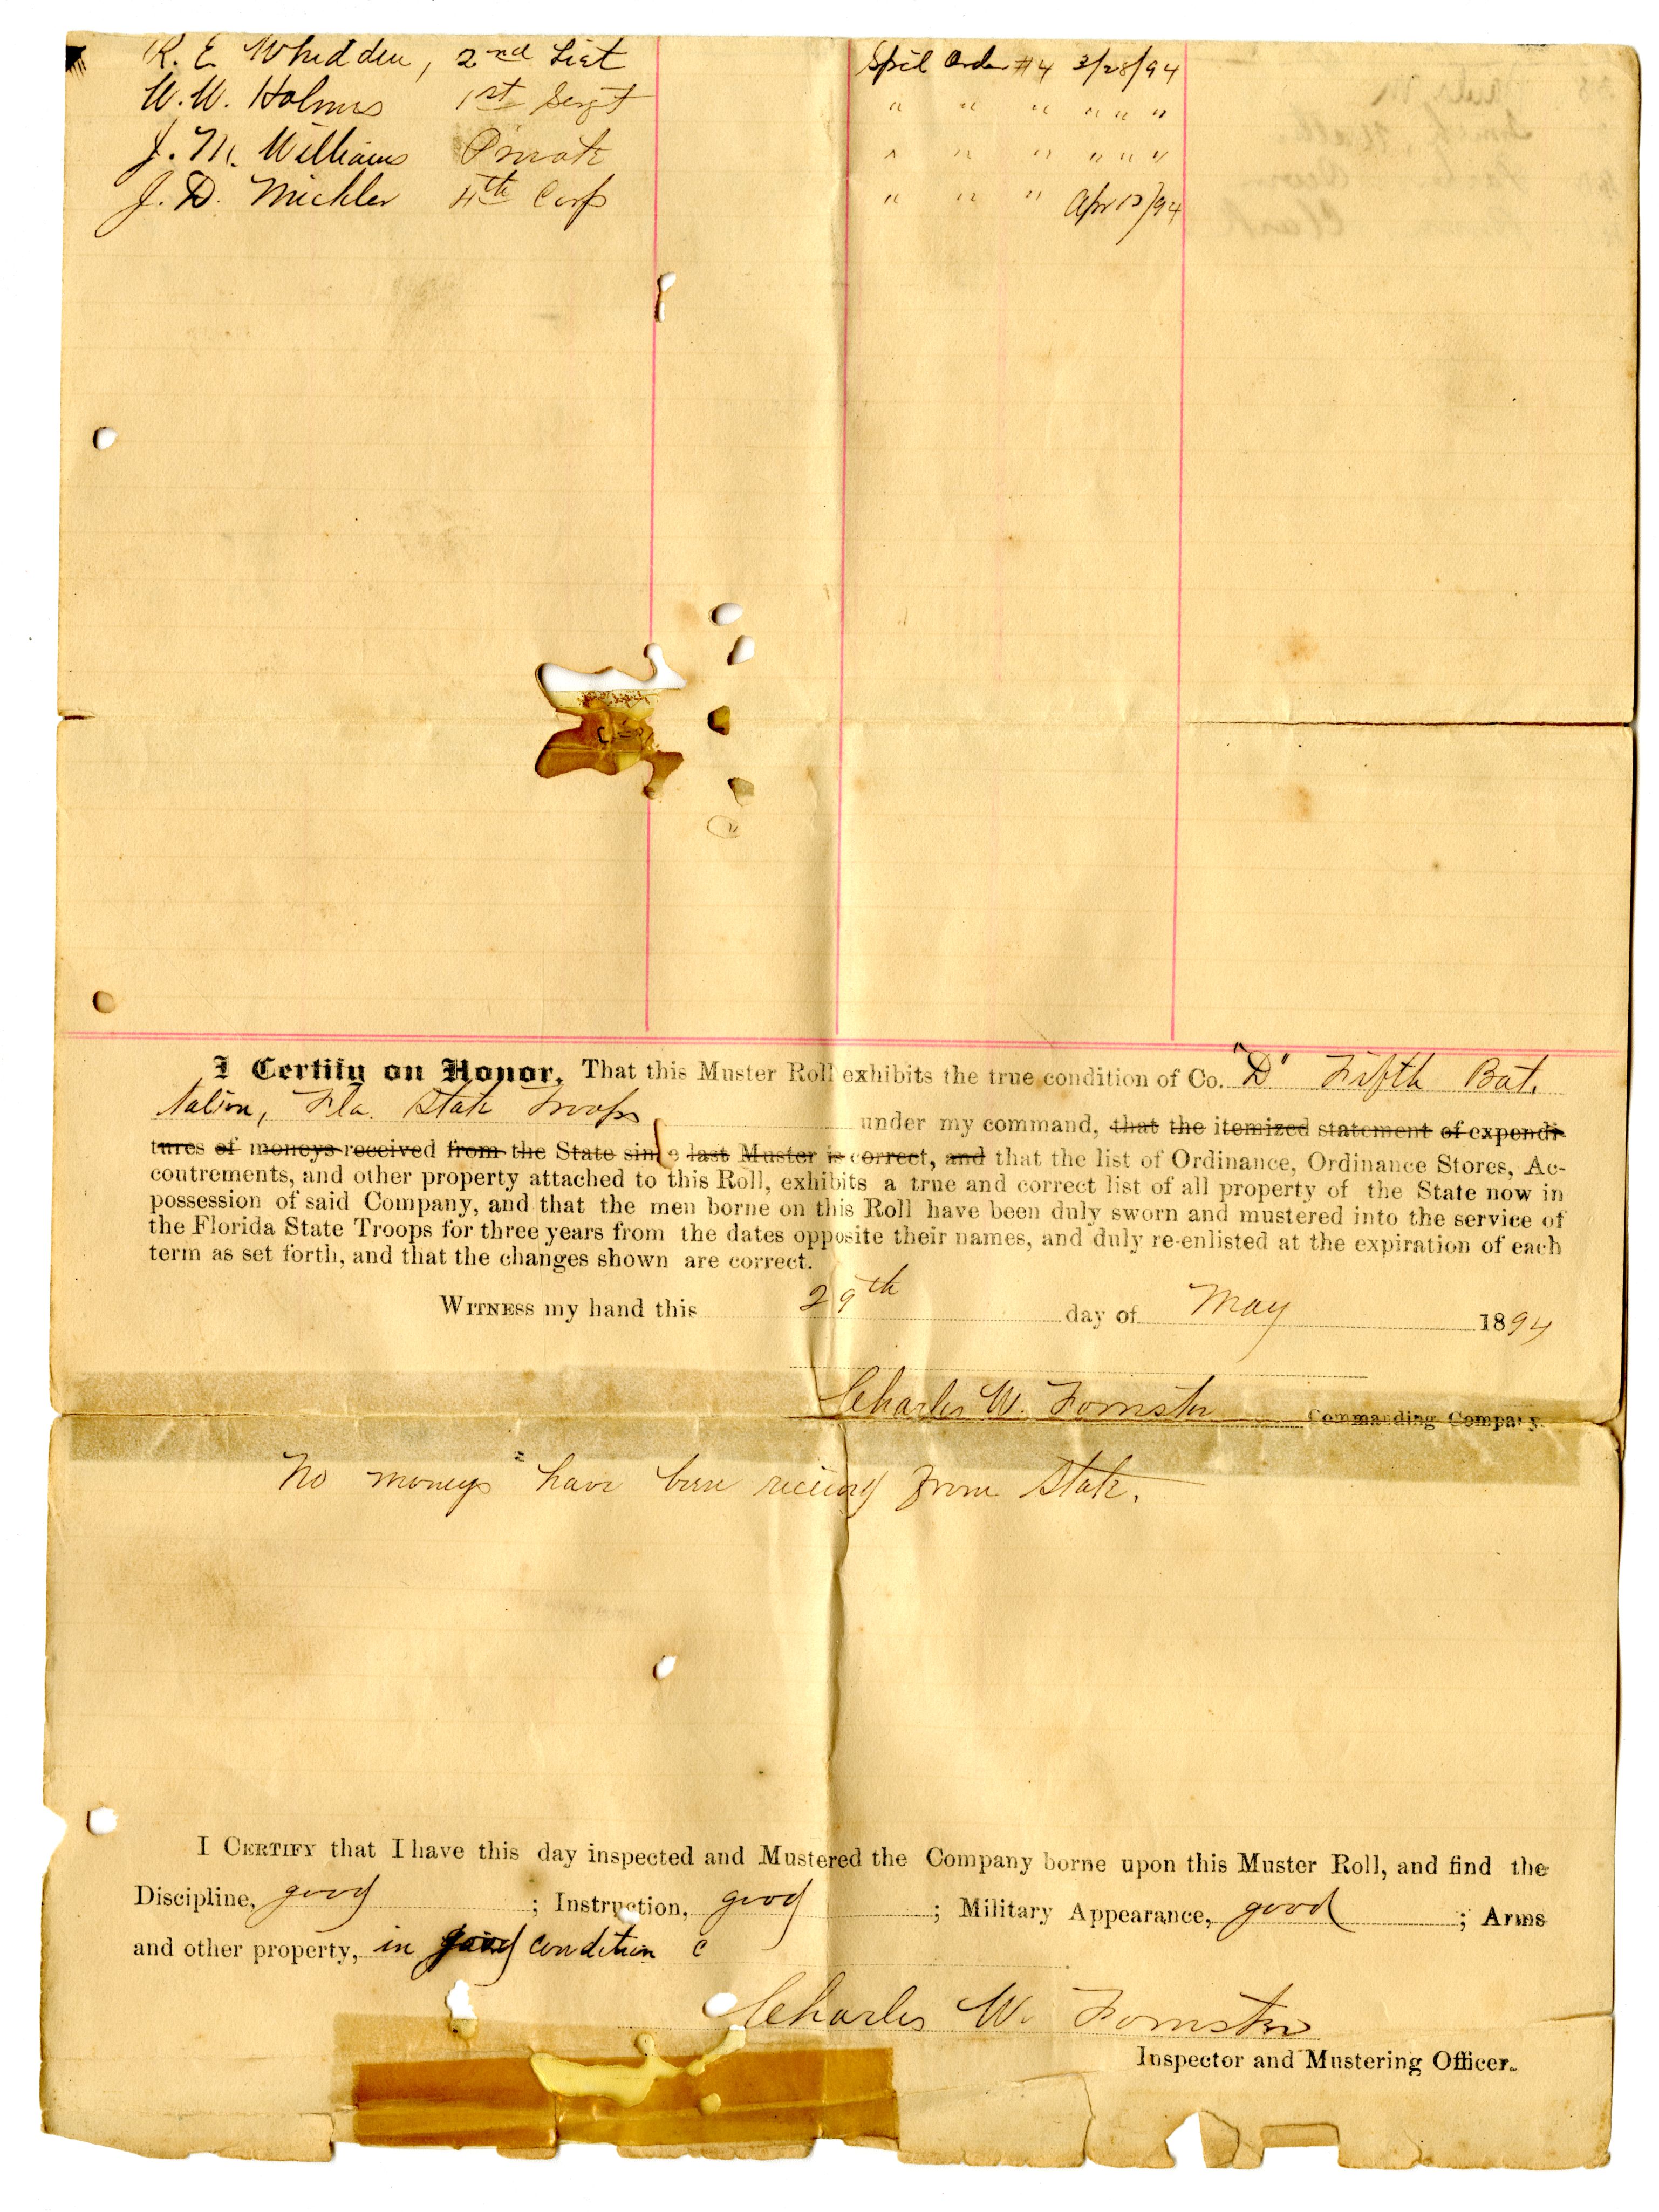 R. E. Whidden, 2nd Liet Spcl Order #4 3/28/94
W. W. Holmes 1st Sergt " " " " " "
J. M. Williams Private " " " " " "
J. D. Mickler 4th Corp " " " Apr 13/94
I Certify on Honor, That this Muster Roll exhibits the true condition of Co. "D" Fifth Bat.
talion, Fla. State Troops under my command, that the itemized statement of expendi-
tures of moneys received from the State since last Muster is correct, and that the list of Ordinance, Ordinance Stores, Ac-
coutrements, and other property attached to this Roll, exhibits a true and correct list of all property of the State now in
possession of said Company, and that the men borne on this Roll have been duly sworn and mustered into the service of
the Florida State Troops for three years from the dates opposite their names, and duly re-enlisted at the expiration of each
term as set forth, and that the changes shown are correct.
WITNESS my hand this 29th day of May 1894
Charles W. Forrister Commanding Company.
No moneys have been received from State.
I CERTIFY that I have this day inspected and Mustered the Company borne upon this Muster Roll, and find the
Discipline, good ; Instruction, good ; Military Appearance, good ; Arms
and other property, in good condition
Charles W. Forrister
Inspector and Mustering Officer.